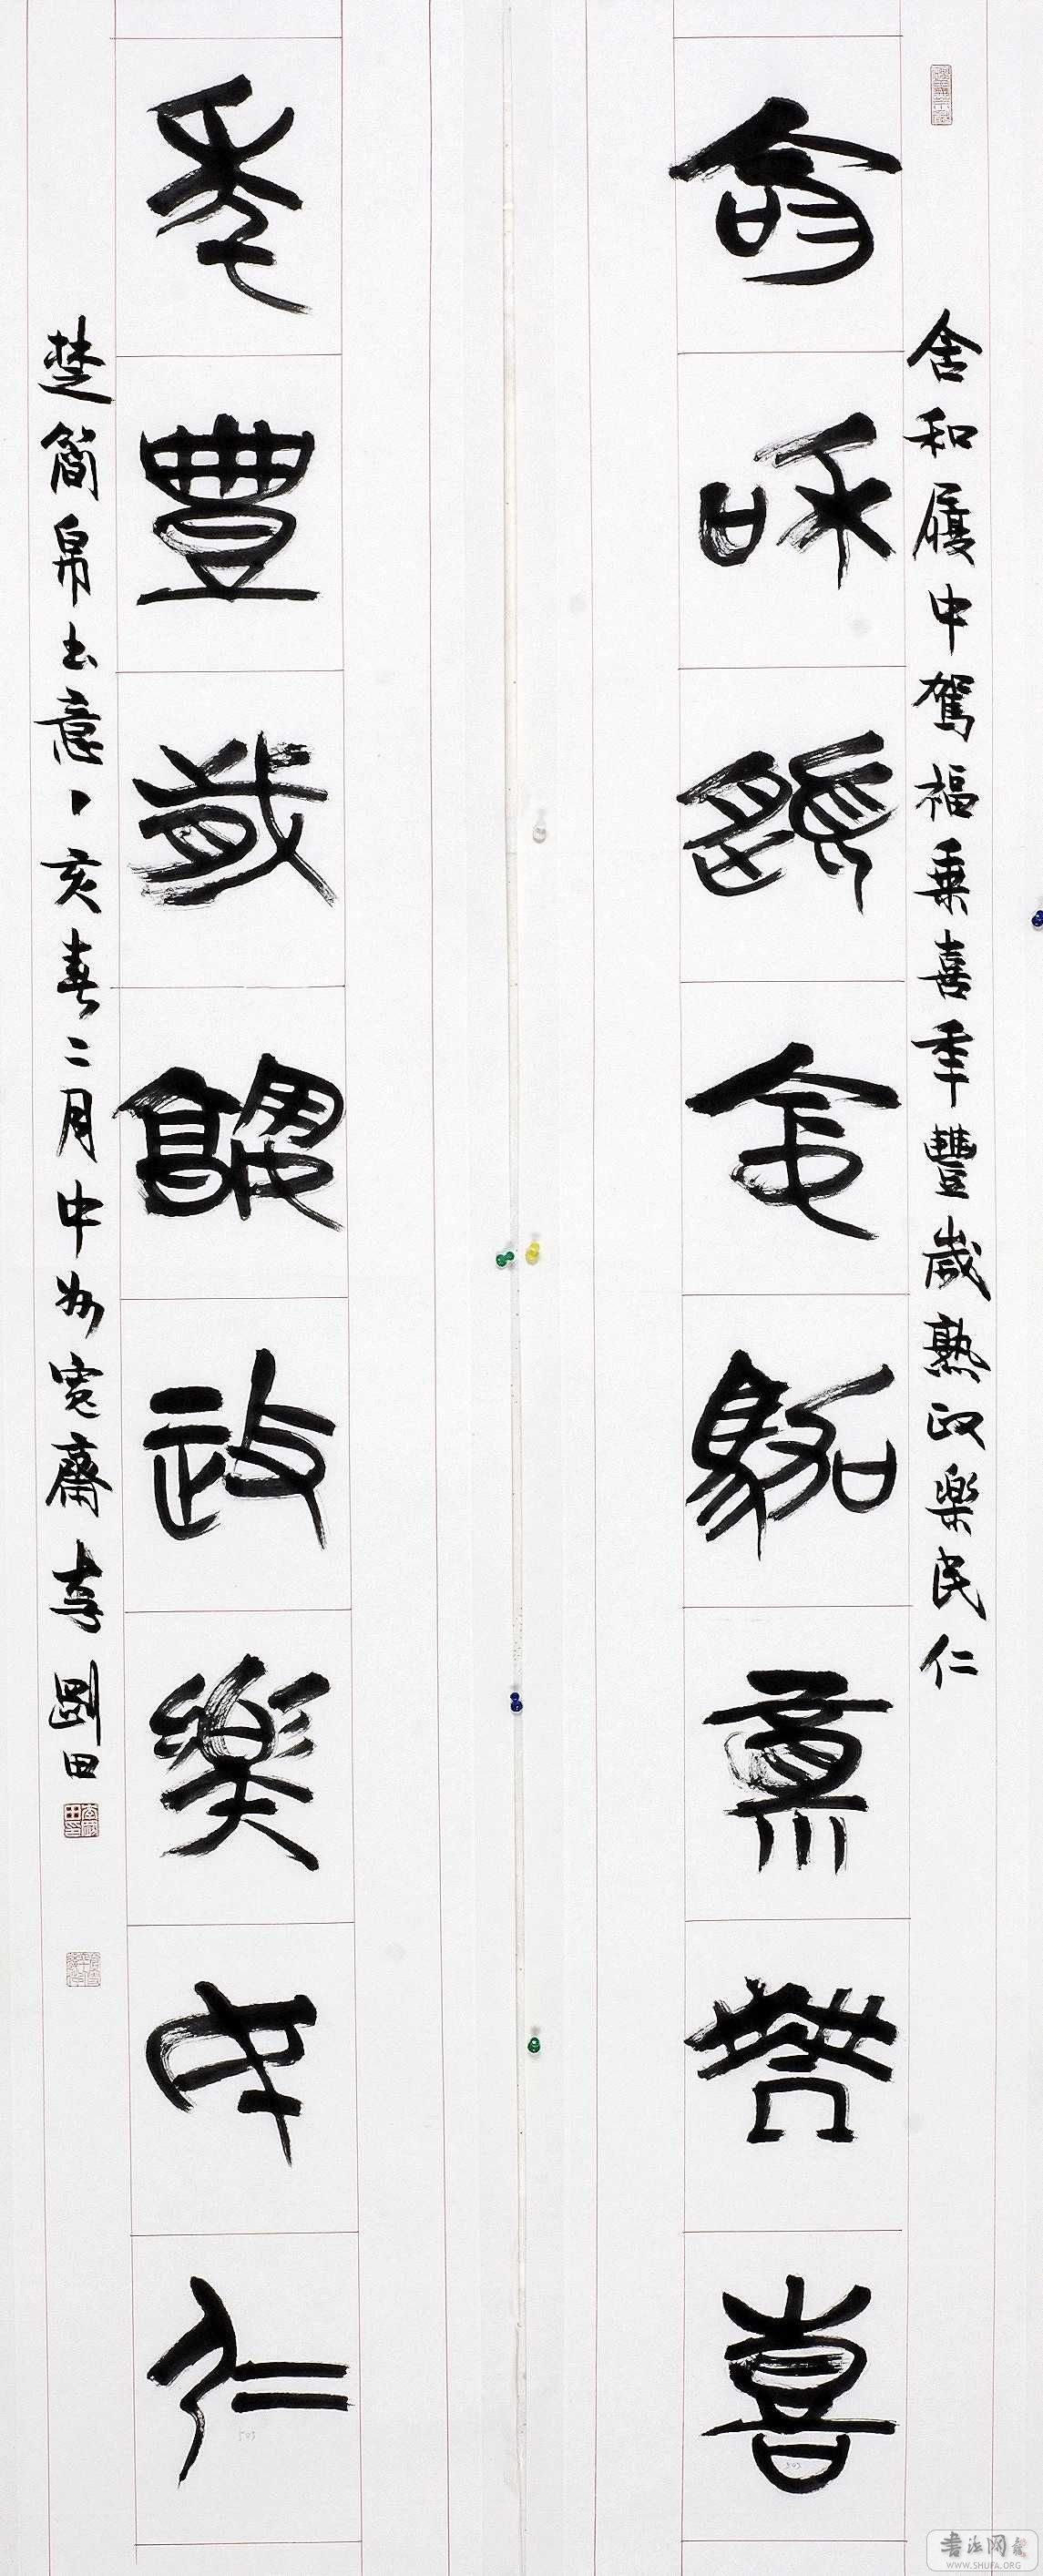 含和履中駕福乘喜年豐歲熟政樂民仁
含和履中駕福乘喜
年豐歲熟政樂民仁
楚簡帛書意丁亥春二月中州寬齋李剛田
503
503
書法网
WWW.SHUFA.ORG